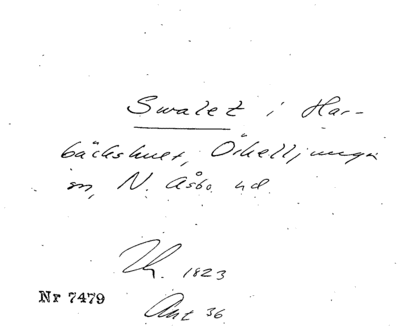 Swalet i Har-
bäckshult, Örkelljunga
sn, N. Åsbo hd.
Th. 1823
Nr 7479
Ant 36